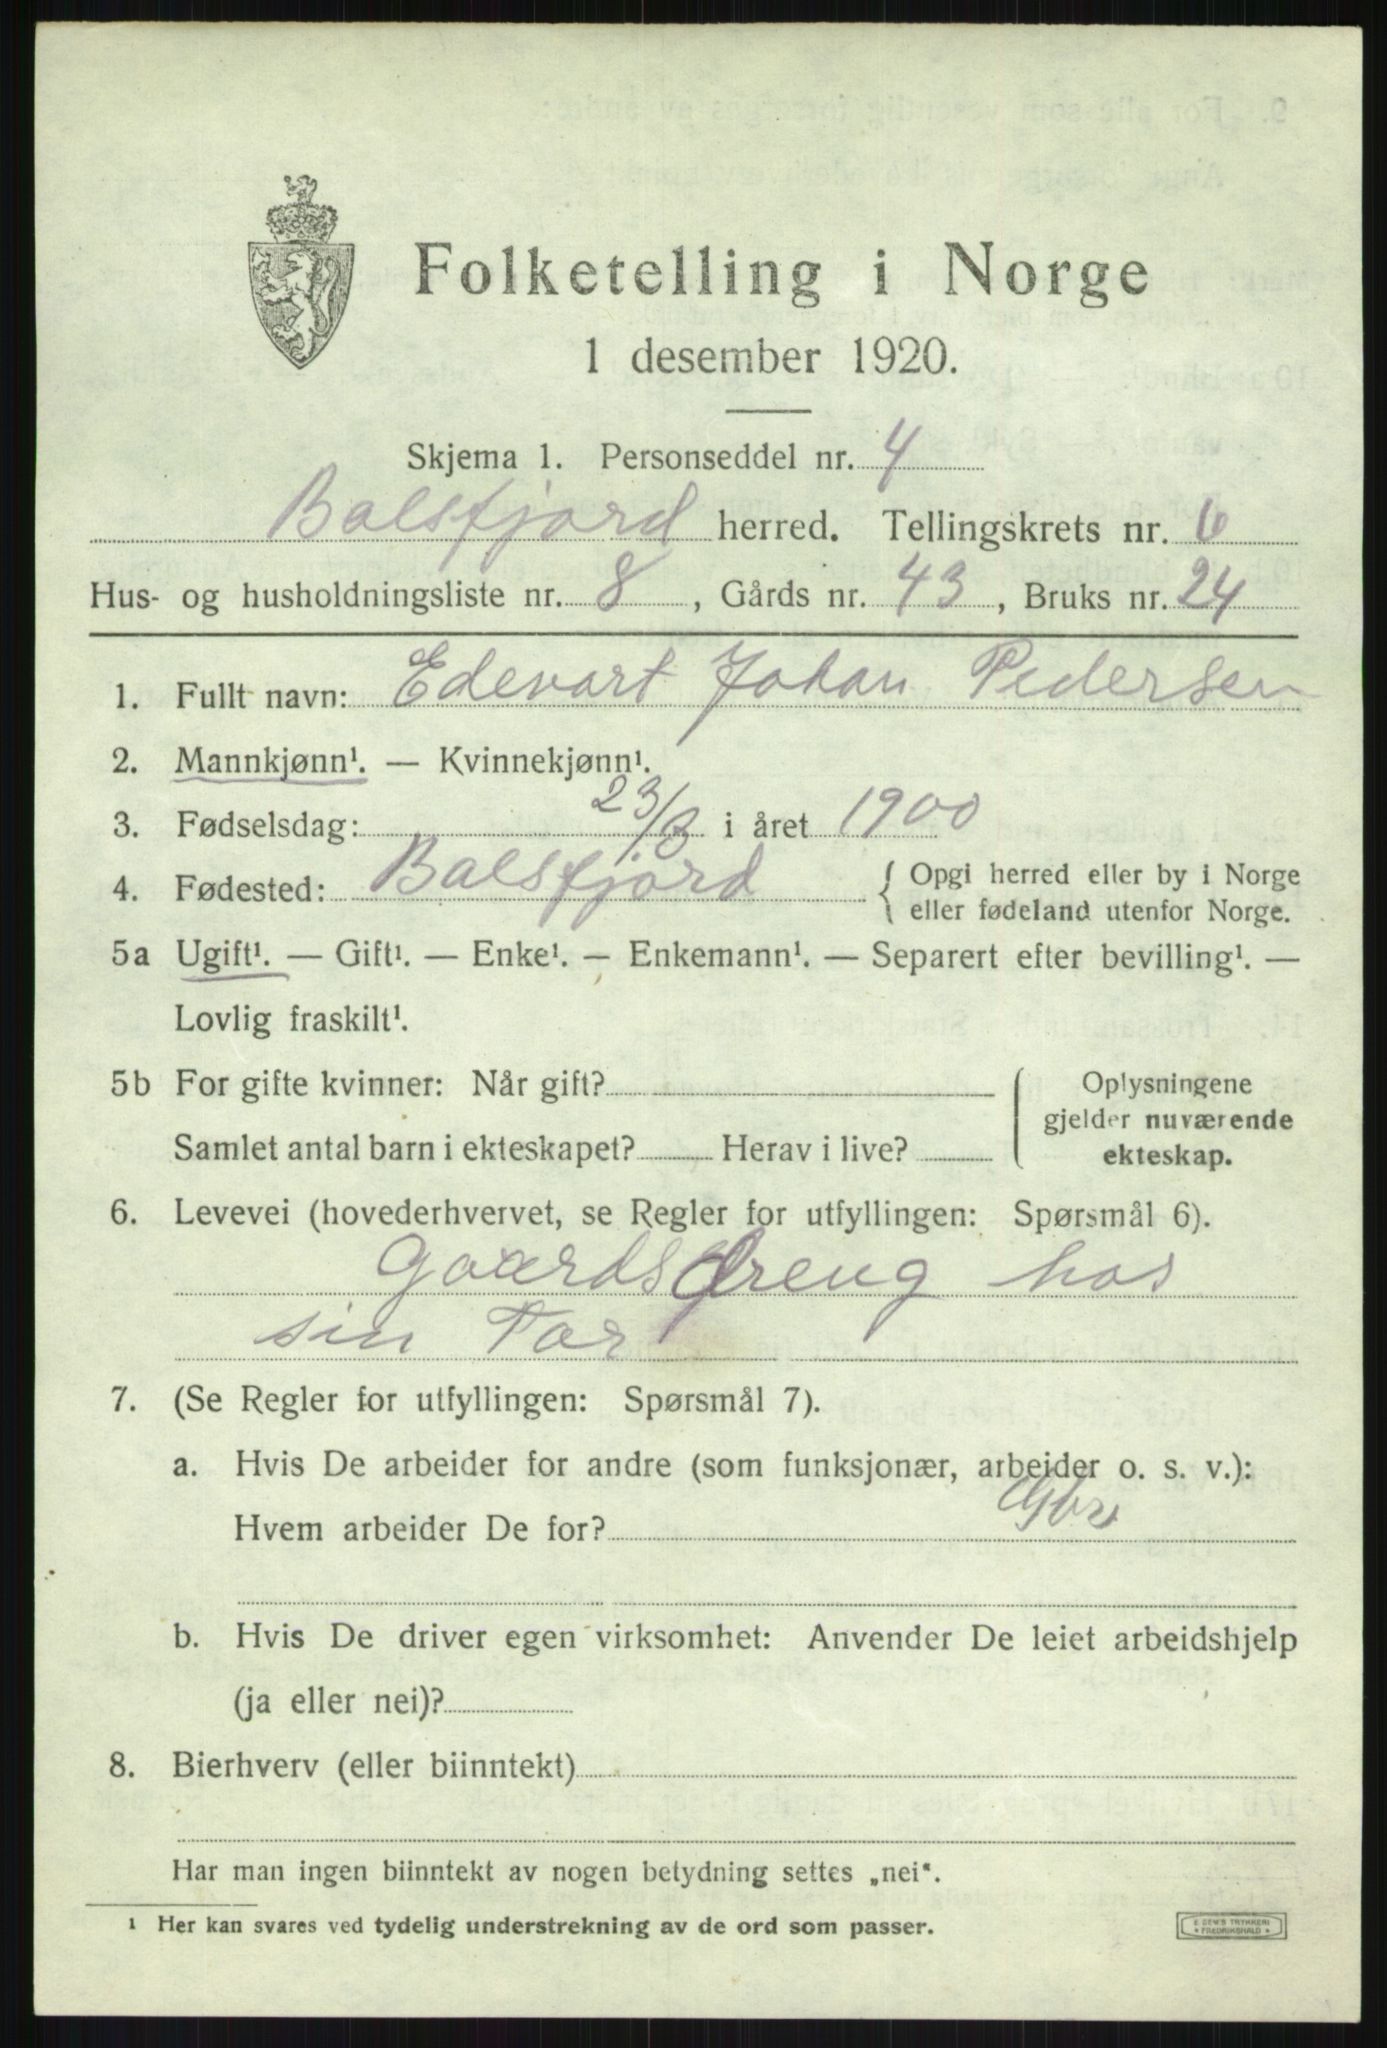 Folketelling i Norge
1 desember 1920.
Skjema 1. Personseddel nr. 4
Balsfjord herred. Tellingskrets nr. 6
Hus- og husholdningsliste nr. 8, Gårds nr. 43, Bruks nr. 24
1. Fullt navn: Edevart Johan Pedersen
2. Mannkjønn¹. — Kvinnekjønn¹.
3. Fødselsdag: 23/3 i året 1900
4. Fødested: Balsfjord { Opgi herred eller by i Norge
eller fødeland utenfor Norge.
5a Ugift¹. — Gift¹. — Enke¹. — Enkemann¹. — Separert efter bevilling¹. —
Lovlig fraskilt¹.
5b For gifte kvinner: Når gift?
Samlet antal barn i ekteskapet? Herav i live?
Oplysningene
gjelder nuværende
ekteskap.
6. Levevei (hovederhvervet, se Regler for utfyllingen: Spørsmål 6).
Gaardsdreng hos
sin Far
7. (Se Regler for utfyllingen: Spørsmål 7).
a. Hvis De arbeider for andre (som funksjonær, arbeider o. s. v.):
Hvem arbeider De for? Gbr
b. Hvis De driver egen virksomhet: Anvender De leiet arbeidshjelp
(ja eller nei)?
8. Bierhverv (eller biinntekt)
Har man ingen biinntekt av nogen betydning settes „nei“.
¹ Her kan svares ved tydelig understrekning av de ord som passer.
E. SEM'S TRYKKERI
FREDRIKSHALD